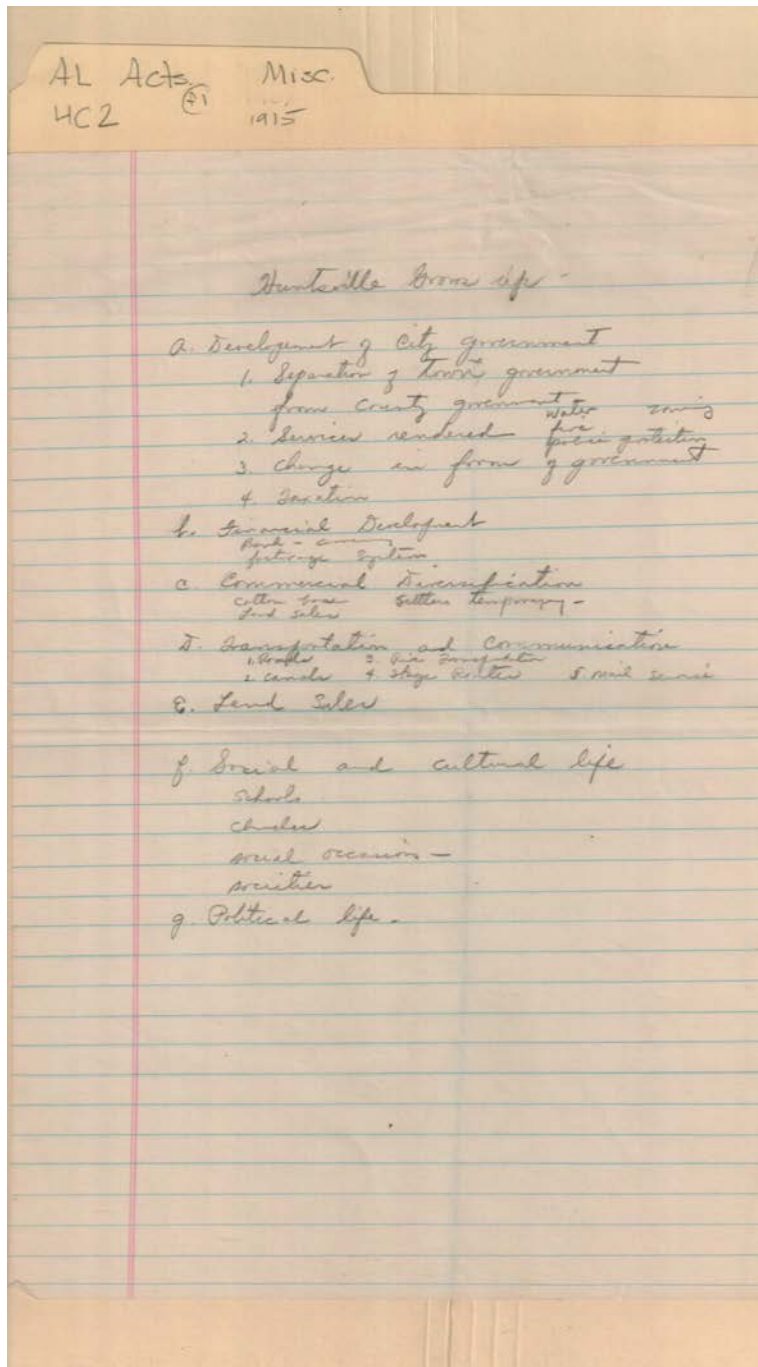 AL Acts Misc.
HC2 1915
Huntsville Grows Up -
a. Development of City government
1. Separation of town government
from County government
2. Services rendered Water zoning
fire
police protection
3. Change in form of government
4. Taxation
b. Financial Development
Bank - currency
System
c Commercial Diversification
cotton base Settlers temporary -
Land Sales
D. Transportation and Communication
1. Roads 3. Air Transportation
2. Canals 4. Stage Routes 5 mail service
E. Land Sales
f. Social and cultural life
schools
churches
social occasions -
societies
g. Political life -